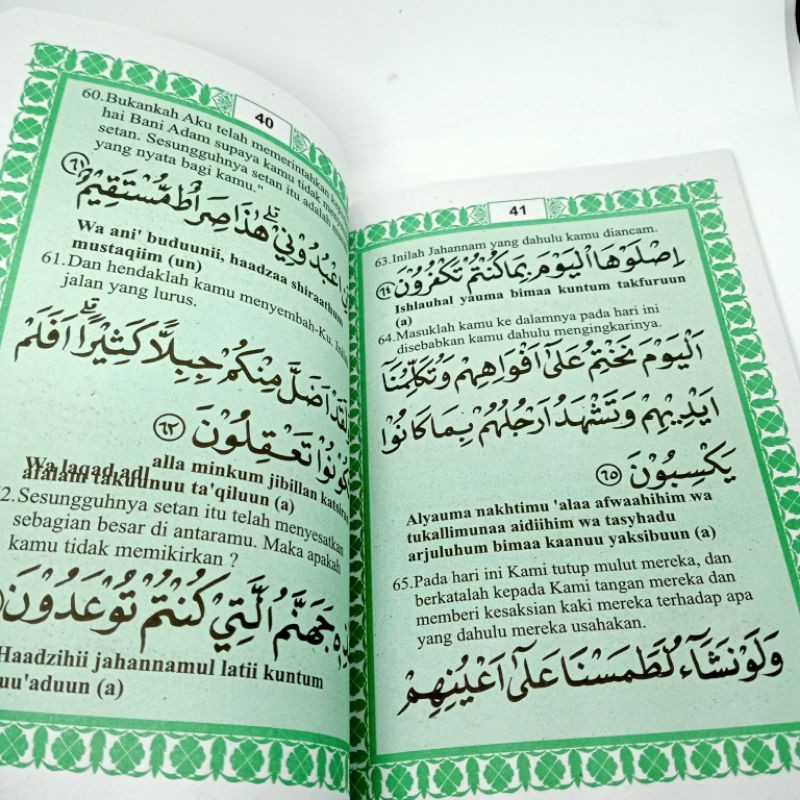 40
60.Bukankah Aku telah memerintahkan
hai Bani Adam supaya kamu tidak
setan. Sesungguhnya setan itu adalah
yang nyata bagi kamu."
اعْبُدُوْنِيْ ۗ هٰذَا صِرَاطٌ مُّسْتَقِيْمٌ ٦١
Wa ani' buduunii, haadzaa shiraathum
mustaqiim (un)
61.Dan hendaklah kamu menyembah-Ku.
jalan yang lurus.
اَضَلَّ مِنْكُمْ جِبِلًّا كَثِيْرًا ۗ اَفَلَمْ
تَعْقِلُوْنَ ٦٢
Wa laqad adl alla minkum jibillan
afalam takuunuu ta'qiluun (a)
2.Sesungguhnya setan itu telah menyesatkan
sebagian besar di antaramu. Maka apakah
kamu tidak memikirkan ?
جَهَنَّمُ الَّتِيْ كُنْتُمْ تُوْعَدُوْنَ
Haadzihii jahannamul latii kuntum
uu'aduun (a)
41
63.Inilah Jahannam yang dahulu kamu diancam.
اِصْلَوْهَا الْيَوْمَ بِمَا كُنْتُمْ تَكْفُرُوْنَ ٦٤
Ishlauhal yauma bimaa kuntum takfuruun
(a)
64.Masuklah kamu ke dalamnya pada hari ini
disebabkan kamu dahulu mengingkarinya.
اَلْيَوْمَ نَخْتِمُ عَلٰٓى اَفْوَاهِهِمْ وَتُكَلِّمُنَآ
اَيْدِيْهِمْ وَتَشْهَدُ اَرْجُلُهُمْ بِمَا كَانُوْا
يَكْسِبُوْنَ ٦٥
Alyauma nakhtimu 'alaa afwaahihim wa
tukallimunaa aidiihim wa tasyhadu
arjuluhum bimaa kaanuu yaksibuun (a)
65.Pada hari ini Kami tutup mulut mereka, dan
berkatalah kepada Kami tangan mereka dan
memberi kesaksian kaki mereka terhadap apa
yang dahulu mereka usahakan.
وَلَوْ نَشَآءُ لَطَمَسْنَا عَلٰٓى اَعْيُنِهِمْ